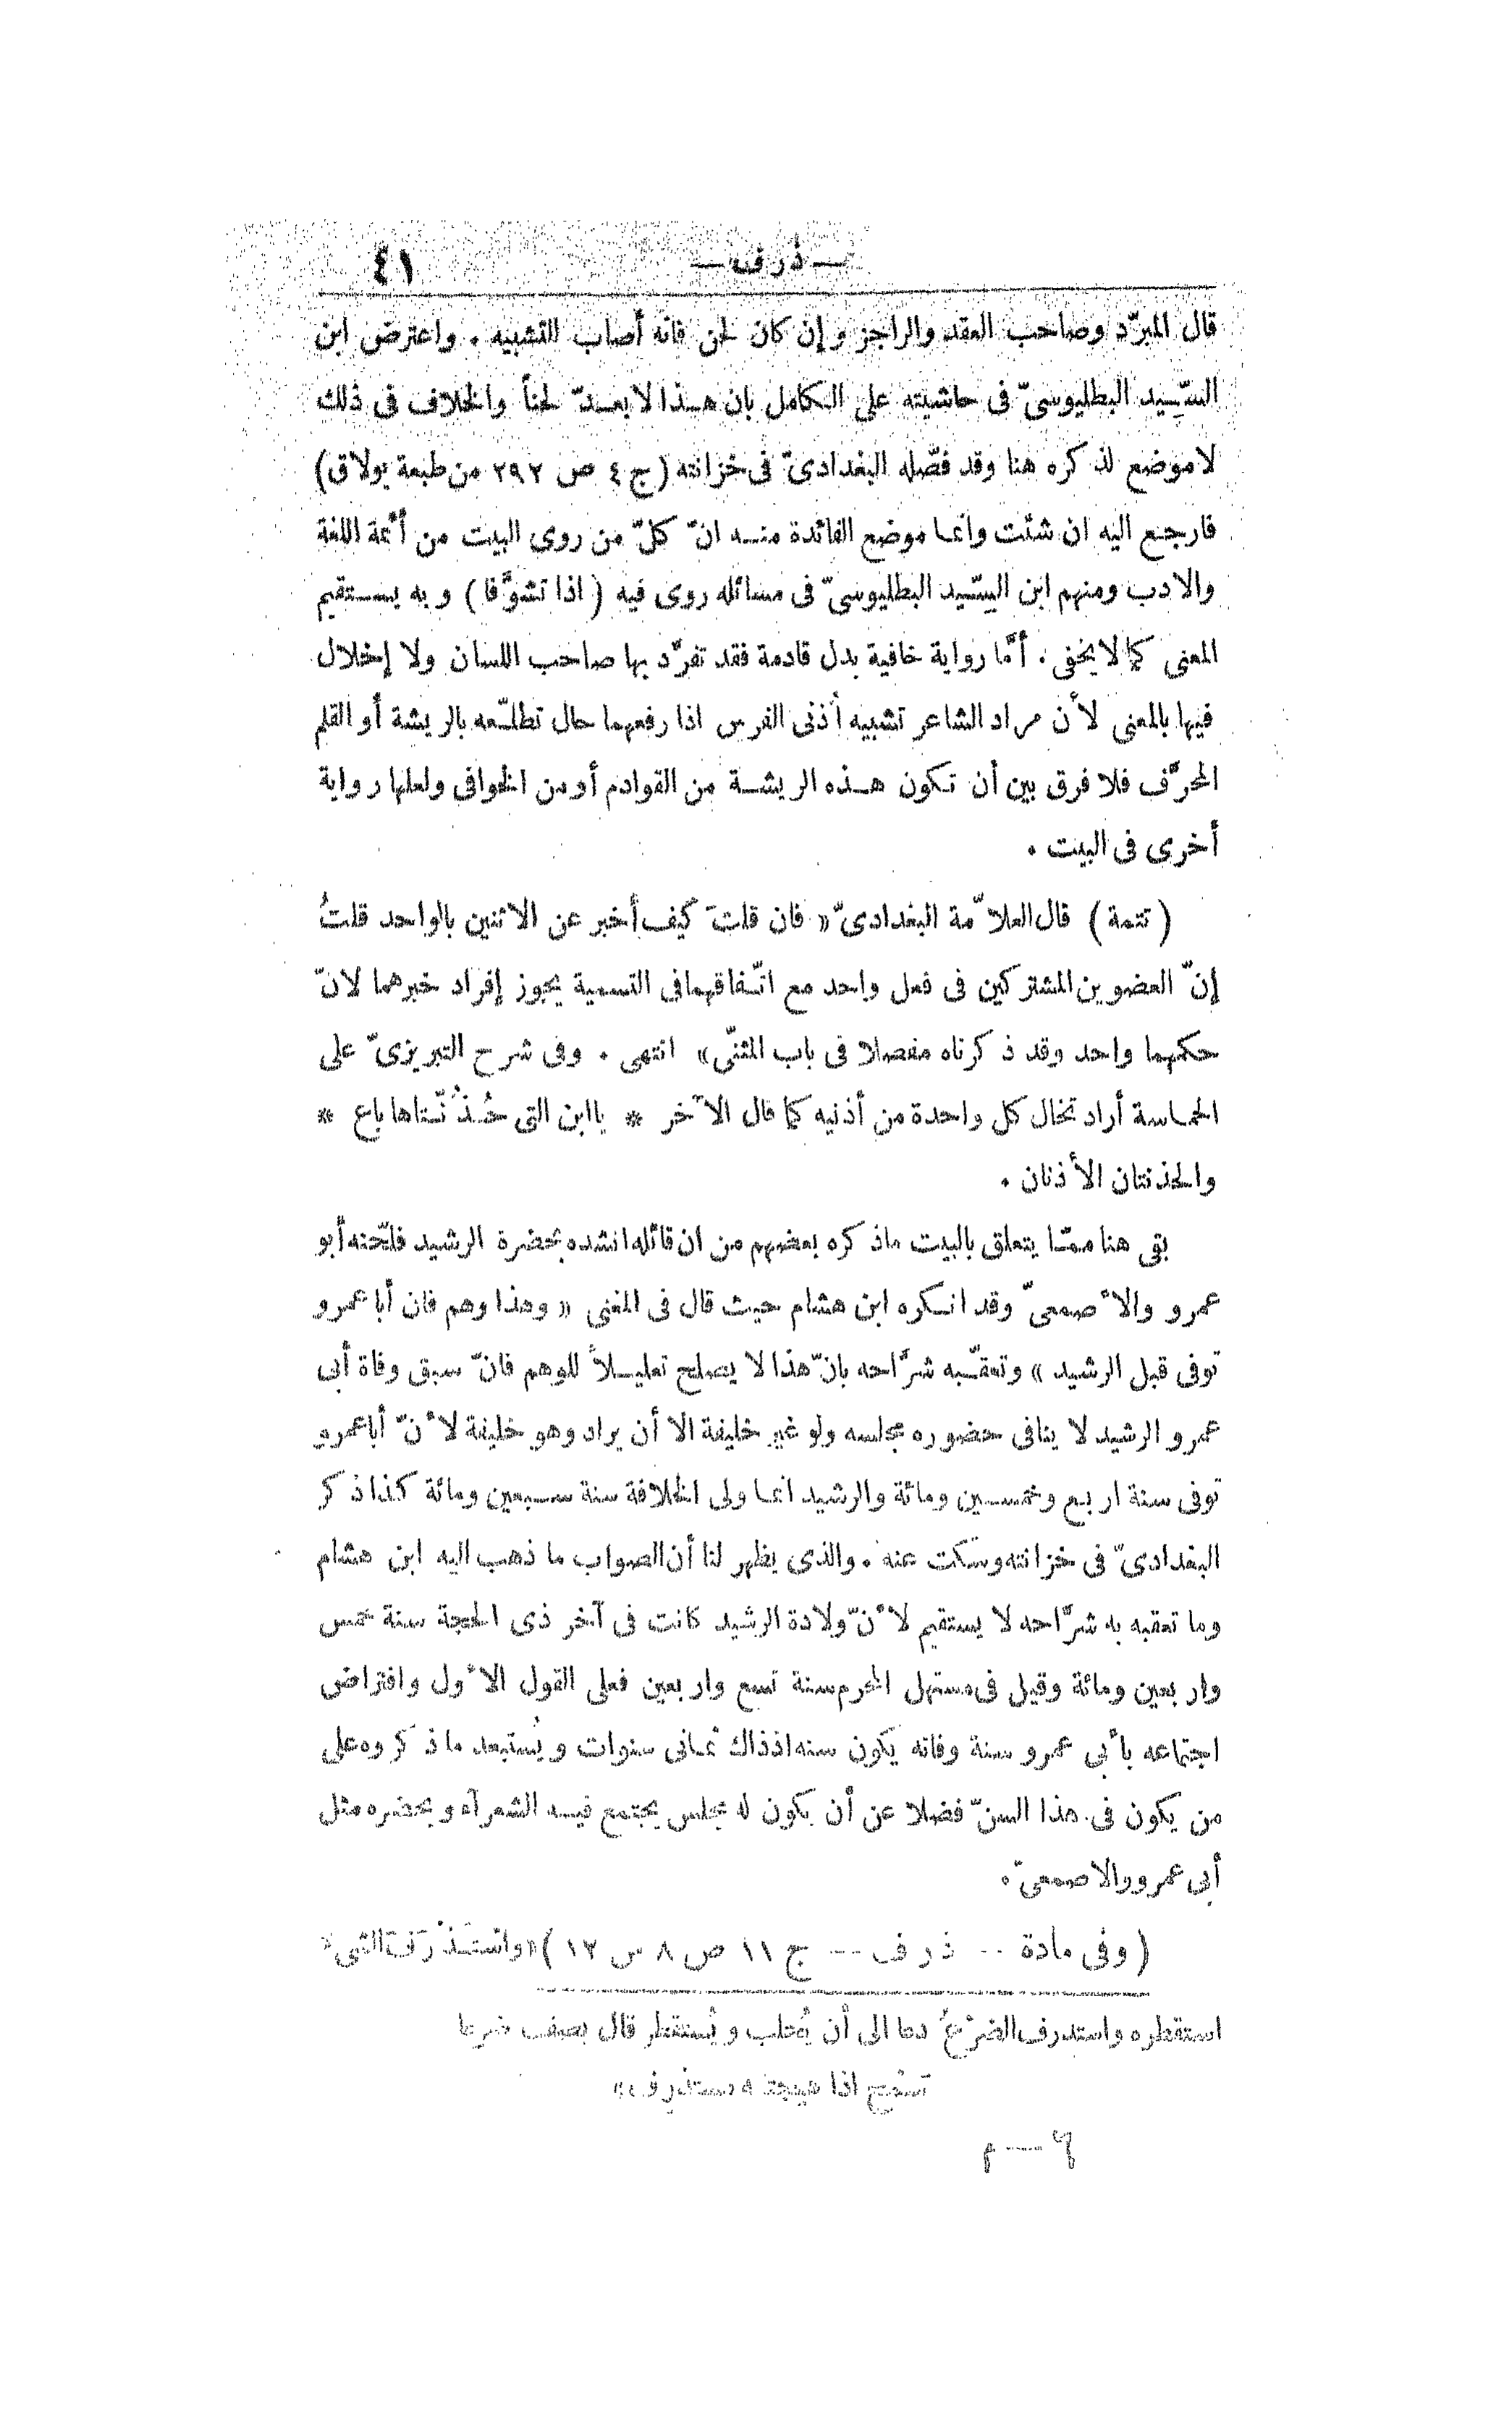 — ذرف —
٤١
قال المبرّد وصاحب العقد والراجز وإن كان لحن فانه أصاب التشبيه . واعترض ابن
السِّيد البطليوسيّ فى حاشيته على الكامل بان هذا لا يعدّ لحناً والخلاف فى ذلك
لا موضع لذكره هنا وقد فصّله البغدادىّ فى خزانته (ج ٤ ص ٢٩٢ من طبعة بولاق)
فارجع اليه ان شئت وانما موضع الفائدة منه انّ كلّ من روى البيت من أئمة اللغة
والادب ومنهم ابن السِّيد البطليوسىّ فى مسائله روى فيه (اذا تشوَّفا) وبه يستقيم
المعنى كما لا يخفى . أمَّا رواية خافية بدل قادمة فقد تفرّد بها صاحب اللسان ولا إخلال
فيها بالمعنى لأن مراد الشاعر تشبيه أذنى الفرس اذا رفعهما حال تطلّعه بالريشة أو القلم
المحرَّف فلا فرق بين أن تكون هذه الريشة من القوادم أو من الخوافى ولعلها رواية
أخرى فى البيت .
(تتمة) قال العلاّمة البغدادىّ «فان قلتَ كيف أخبر عن الاثنين بالواحد قلتُ
إنّ العضوين المشتركين فى فعل واحد مع اتّفاقهما فى التسمية يجوز إفراد خبرهما لانّ
حكمهما واحد وقد ذكرناه مفصلا فى باب المثنّى» انتهى . وفى شرح التبريزىّ على
الحماسة أراد تخال كل واحدة من أذنيه كما قال الآخر * يا ابن التى حُذُنَّتاها باع *
والحذنتان الأذنان .
بقى هنا ممّا يتعلق بالبيت ماذكره بعضهم من ان قائله انشده بحضرة الرشيد فلحّنه أبو
عمرو والأصمعىّ وقد انكره ابن هشام حيث قال فى المغنى «وهذا وهم فان أبا عمرو
توفى قبل الرشيد» وتعقّبه شرَّاحه بانّ هذا لا يصلح تعليلاً للوهم فانّ سبق وفاة أبى
عمرو الرشيد لا ينافى حضوره مجلسه ولو غير خليفة الا أن يراد وهو خليفة لأنّ أبا عمرو
توفى سنة اربع وخمسين ومائة والرشيد انما ولى الخلافة سنة سبعين ومائة كذا ذكر
البغدادىّ فى خزانته وسكت عنه . والذى يظهر لنا أن الصواب ما ذهب اليه ابن هشام
وما تعقبه به شرَّاحه لا يستقيم لأنّ ولادة الرشيد كانت فى آخر ذى الحجة سنة خمس
واربعين ومائة وقيل فى مستهل المحرم سنة تسع واربعين فعلى القول الأول وافتراض
اجتماعه بأبى عمرو سنة وفاته يكون سنه اذ ذاك ثمانى سنوات ويُستبعد ماذكروه على
من يكون فى هذا السنّ فضلا عن أن يكون له مجلس يجتمع فيه الشعرآء ويحضره مثل
أبى عمرو والاصمعىّ .
(وفى مادة -- ذرف -- ج ١١ ص ٨ س ١٢) «واسْتَذْرَفَ الشىء
استقطره واستذرف الضرْعُ دعا الى أن يُحلب ويُستقطر قال يصف ضرعا
سَمْح اذا هيجته مستذرف»
٦ — م